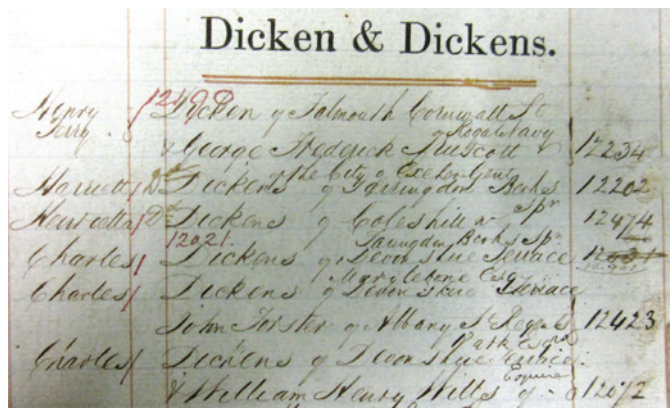 Dicken & Dickens.
Henry 12490 Dicken of Falmouth Cornwall
Terry of Royal Navy
& George Frederick Truscott 12234
the City of Exeter Gent
Harriett Dickens of Farringdon Berks 12202
Spr
Henrietta Dickens of Coleshill nr 12474
12021 Faringdon Berks Spr
Charles Dickens of Devonshire Terrace
Marylebone Esq
Charles Dickens of Devonshire Terrace
John Forster of Albany 12423
Park Esqrs
Charles Dickens of Devonshire Terrace
Esquire
& William Henry Wills of 12072